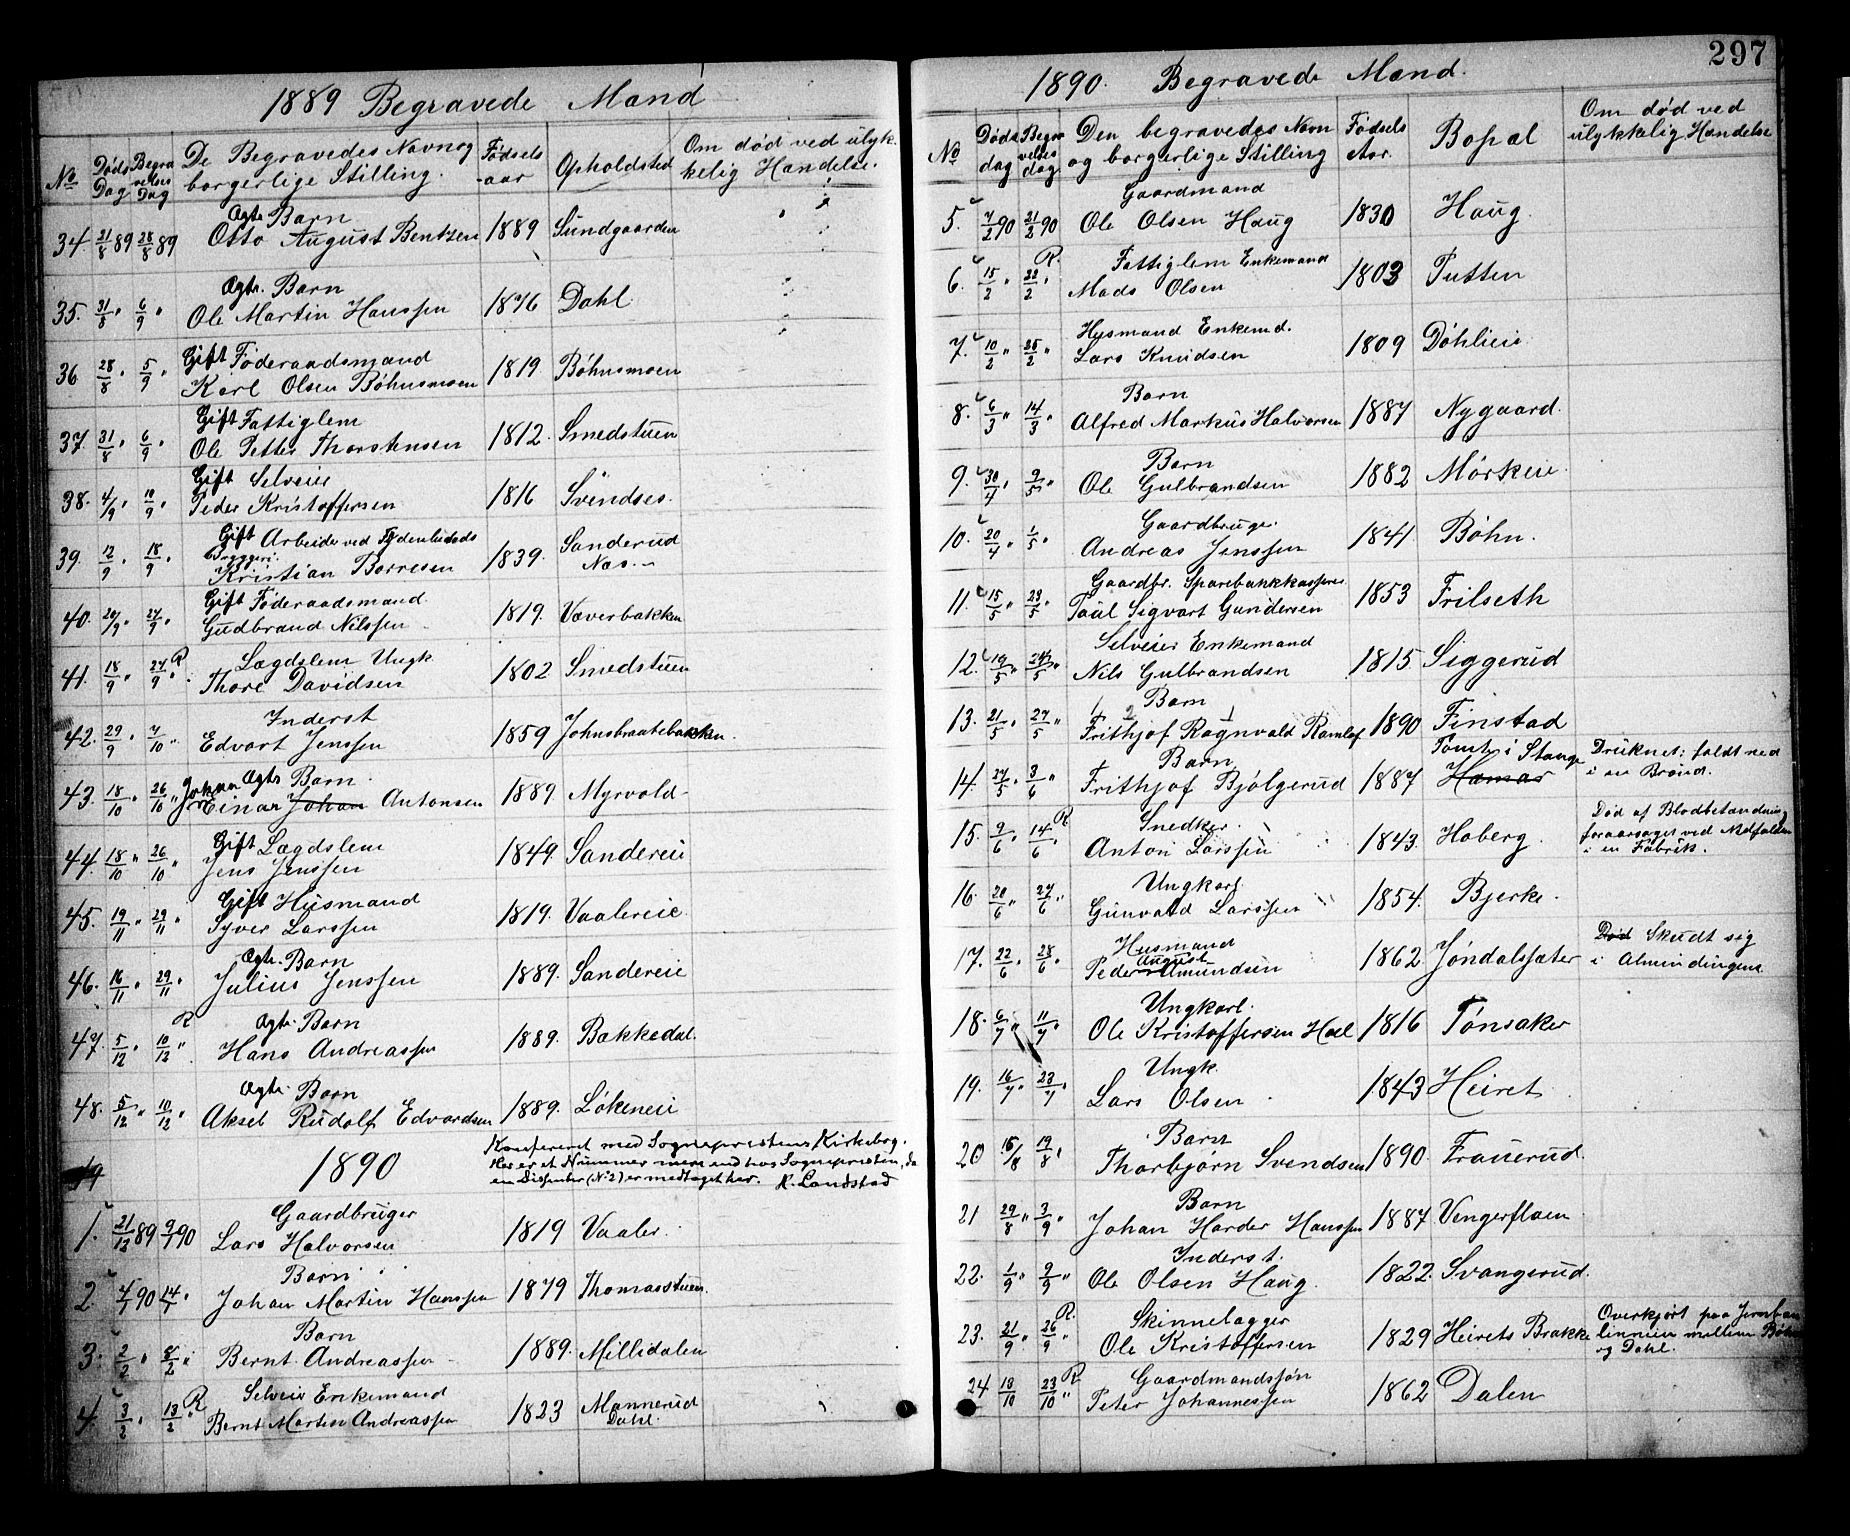 297
1889 Begravede Mænd
No Døds Dag Begravelses Dag De Begravedes Navn og borgerlige Stilling. Fødsels-aar Opholdsted Om død ved ulykkelig Hændelse.
34 21/8 89 28/8 89 Ægte Barn
Otto August Bentzen 1889 Sundgaarden
35. 31/8 " 6/9 " Ægte. Barn
Ole Martin Hanssen 1876 Dahl
36 28/8 " 5/9 " Gift Føderaadsmand
Karl Olsen Bøhnsmoen 1819 Bøhnsmoen
37. 31/8 " 6/9 " Gift Fattiglem
Ole Petter Thorstensen 1812. Smedstuen
38. 4/9 " 10/9 " Gift Selveier
Peder Kristoffersen 1816 Svendses.
39. 12/9 " 18/9 " Gift Arbeider ved
Bryggeri.
Kristian Borresen 1839. Sanderud
Næs.
40. 20/9 " 27/9 " Gift Føderaadsmand
Gudbrand Nilssen 1819. Væverbakken
41. 18/9 " 24/9 " R Lægdslem Ungk
Thore Davidsen 1802 Smedstuen
42. 29/9 " 7/10 " Inderst
Edvart Jenssen 1859 Johnsbraatebakken.
43. 18/10 " 26/10 " Ægte Barn.
Johan Einar Johan Antonsen 1889. Myrvold
44. 18/10 " 26/10 " Gift Lægdslem
Jens Jenssen 1849. Sandereie
45. 19/11 " 29/11 " Gift Husmand
Syver Larssen 1819. Vaalereie.
46. 16/11 " 29/11 " Ægte. Barn
Julius Jenssen 1889. Sandereie
47. 5/12 " 10/12 " R Ægte Barn
Hans Andreassen 1889. Bakkedal.
48. 5/12 " 10/12 " Ægte. Barn
Aksel Rudolf Edvardsen 1889. Løkeneie
49 1890
Konfereret med Sognepræstens Kirkebog.
Her er et Nummer mere end hos Sognepræsten, da
en Dissenter (No 2) er medtaget her. K. Landstad
1. 21/12 89 9/1 90 Gaardbruger
Lars Halvorsen 1819 Vaaler.
2 4/1 90 14/1 " Barn
Johan Martin Hanssen 1879 Thomasstuen.
3. 2/2 " 8/2 " Barn
Bernt Andreassen 1889. Millidalen
4. 3/2 " 13/2 " R Selveier Enkemand
Bernt Martin Andreassen 1823 Mannerud
Dahl.
1890. Begravede Mænd.
No Døds dag Begravelses dag Den begravedes Navn og borgerlige Stilling Fødsels Aar. Bopæl Om død ved ulykkelig Hændelse
5. 7/2 90 21/2 90 Gaardmand
Ole Olsen Haug 1830 Haug.
6. 15/2 " 22/2 " R. Fattiglem Enkemand
Mads Olsen 1803 Tutten
7. 10/2 " 25/2 " Husmand Enkemd.
Lars Knudsen 1809 Døhlieie
8. 6/3 " 14/3 " Barn
Alfred Markus Halvorsen 1887 Nygaard.
9. 30/4 " 9/5 " Barn
Ole Gulbrandsen 1882 Mørkeie
10. 20/4 " 1/5 " Gaardbruger
Andreas Jenssen 1841 Bøhn.
11. 15/5 " 23/5 " Gaardbr. Sparebankkasserer
Paul Sigvart Gundersen 1853 Frilseth
12. 19/5 " 24/5 " Selveier Enkemand
Nils Gulbrandsen 1815 Siggerud
13. 21/5 " 27/5 " Barn
Frithjof Ragnvald Ramlef 1890 Finstad
14. 27/5 " 3/6 " Barn
Frithjof Bjølgerud 1887 Tomter i Stange
Hamar Druknet: faldt ned
i en Brønd.
15. 9/6 " 14/6 " R Snedker.
Anton Larssen 1843. Hoberg. Død af Blodbetændning
foraarsaget ved Nedfalden
i en Fabrik.
16. 20/6 " 27/6 " Ungkarl
Gunvald Larssen 1854. Bjerke.
17. 22/6 " 28/6 " Husmand
August
Peder Amundsen 1862 Jøndalssæter Død Skudt sig
i Almindingens
18. 6/7 " 11/7 " Ungkarl.
Ole Kristoffersen Hæl 1816 Tønsaker
19. 16/7 " 23/7 " Ungk.
Lars Olsen 1843 Heiret
20 15/8 19/8 " Barn
Thorbjørn Svendsen 1890. Frauerud.
21 29/8 " 3/9 " Barn
Johan Harder Hanssen 1887 Vengerfloen
22. 1/9 " 9/9 " Inderst.
Ole Olsen Haug. 1822. Svangerud.
23. 21/9 " 26/9 " R. Skinnelægger
Ole Kristoffersen 1829 Heirets Brakke Overkjørt paa Jernban
linnien mellem Bøhn
og Dahl.
24 18/10 23/10 " R Gaardmandssøn
Peter Johannessen 1862 Dalen